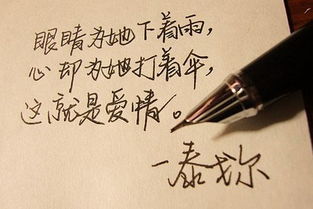 眼睛为她下着雨，
心却为她打着伞，
这就是爱情。
—泰戈尔